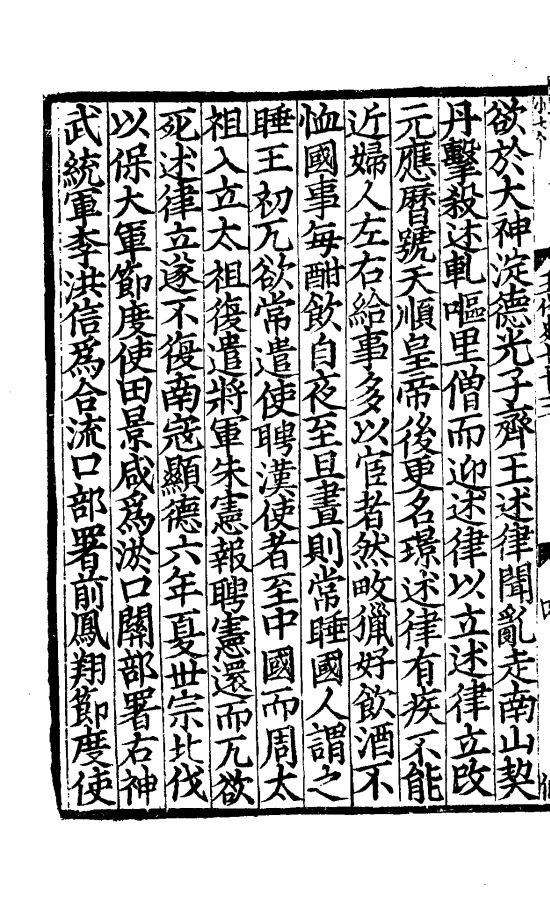 欲於大神淀德光子齊王述律聞亂走南山契
丹擊殺述軋嘔里僧而迎述律以立述律立改
元應曆號天順皇帝後更名璟述律有疾不能
近婦人左右給事多以宦者然畋獵好飲酒不
恤國事每酣飲自夜至旦晝則常睡國人謂之
睡王初兀欲常遣使聘漢使者至中國而周太
祖入立太祖復遣將軍朱憲報聘憲還而兀欲
死述律立遂不復南寇顯德六年夏世宗北伐
以保大軍節度使田景咸爲淤口關部署右神
武統軍李洪信爲合流口部署前鳳翔節度使